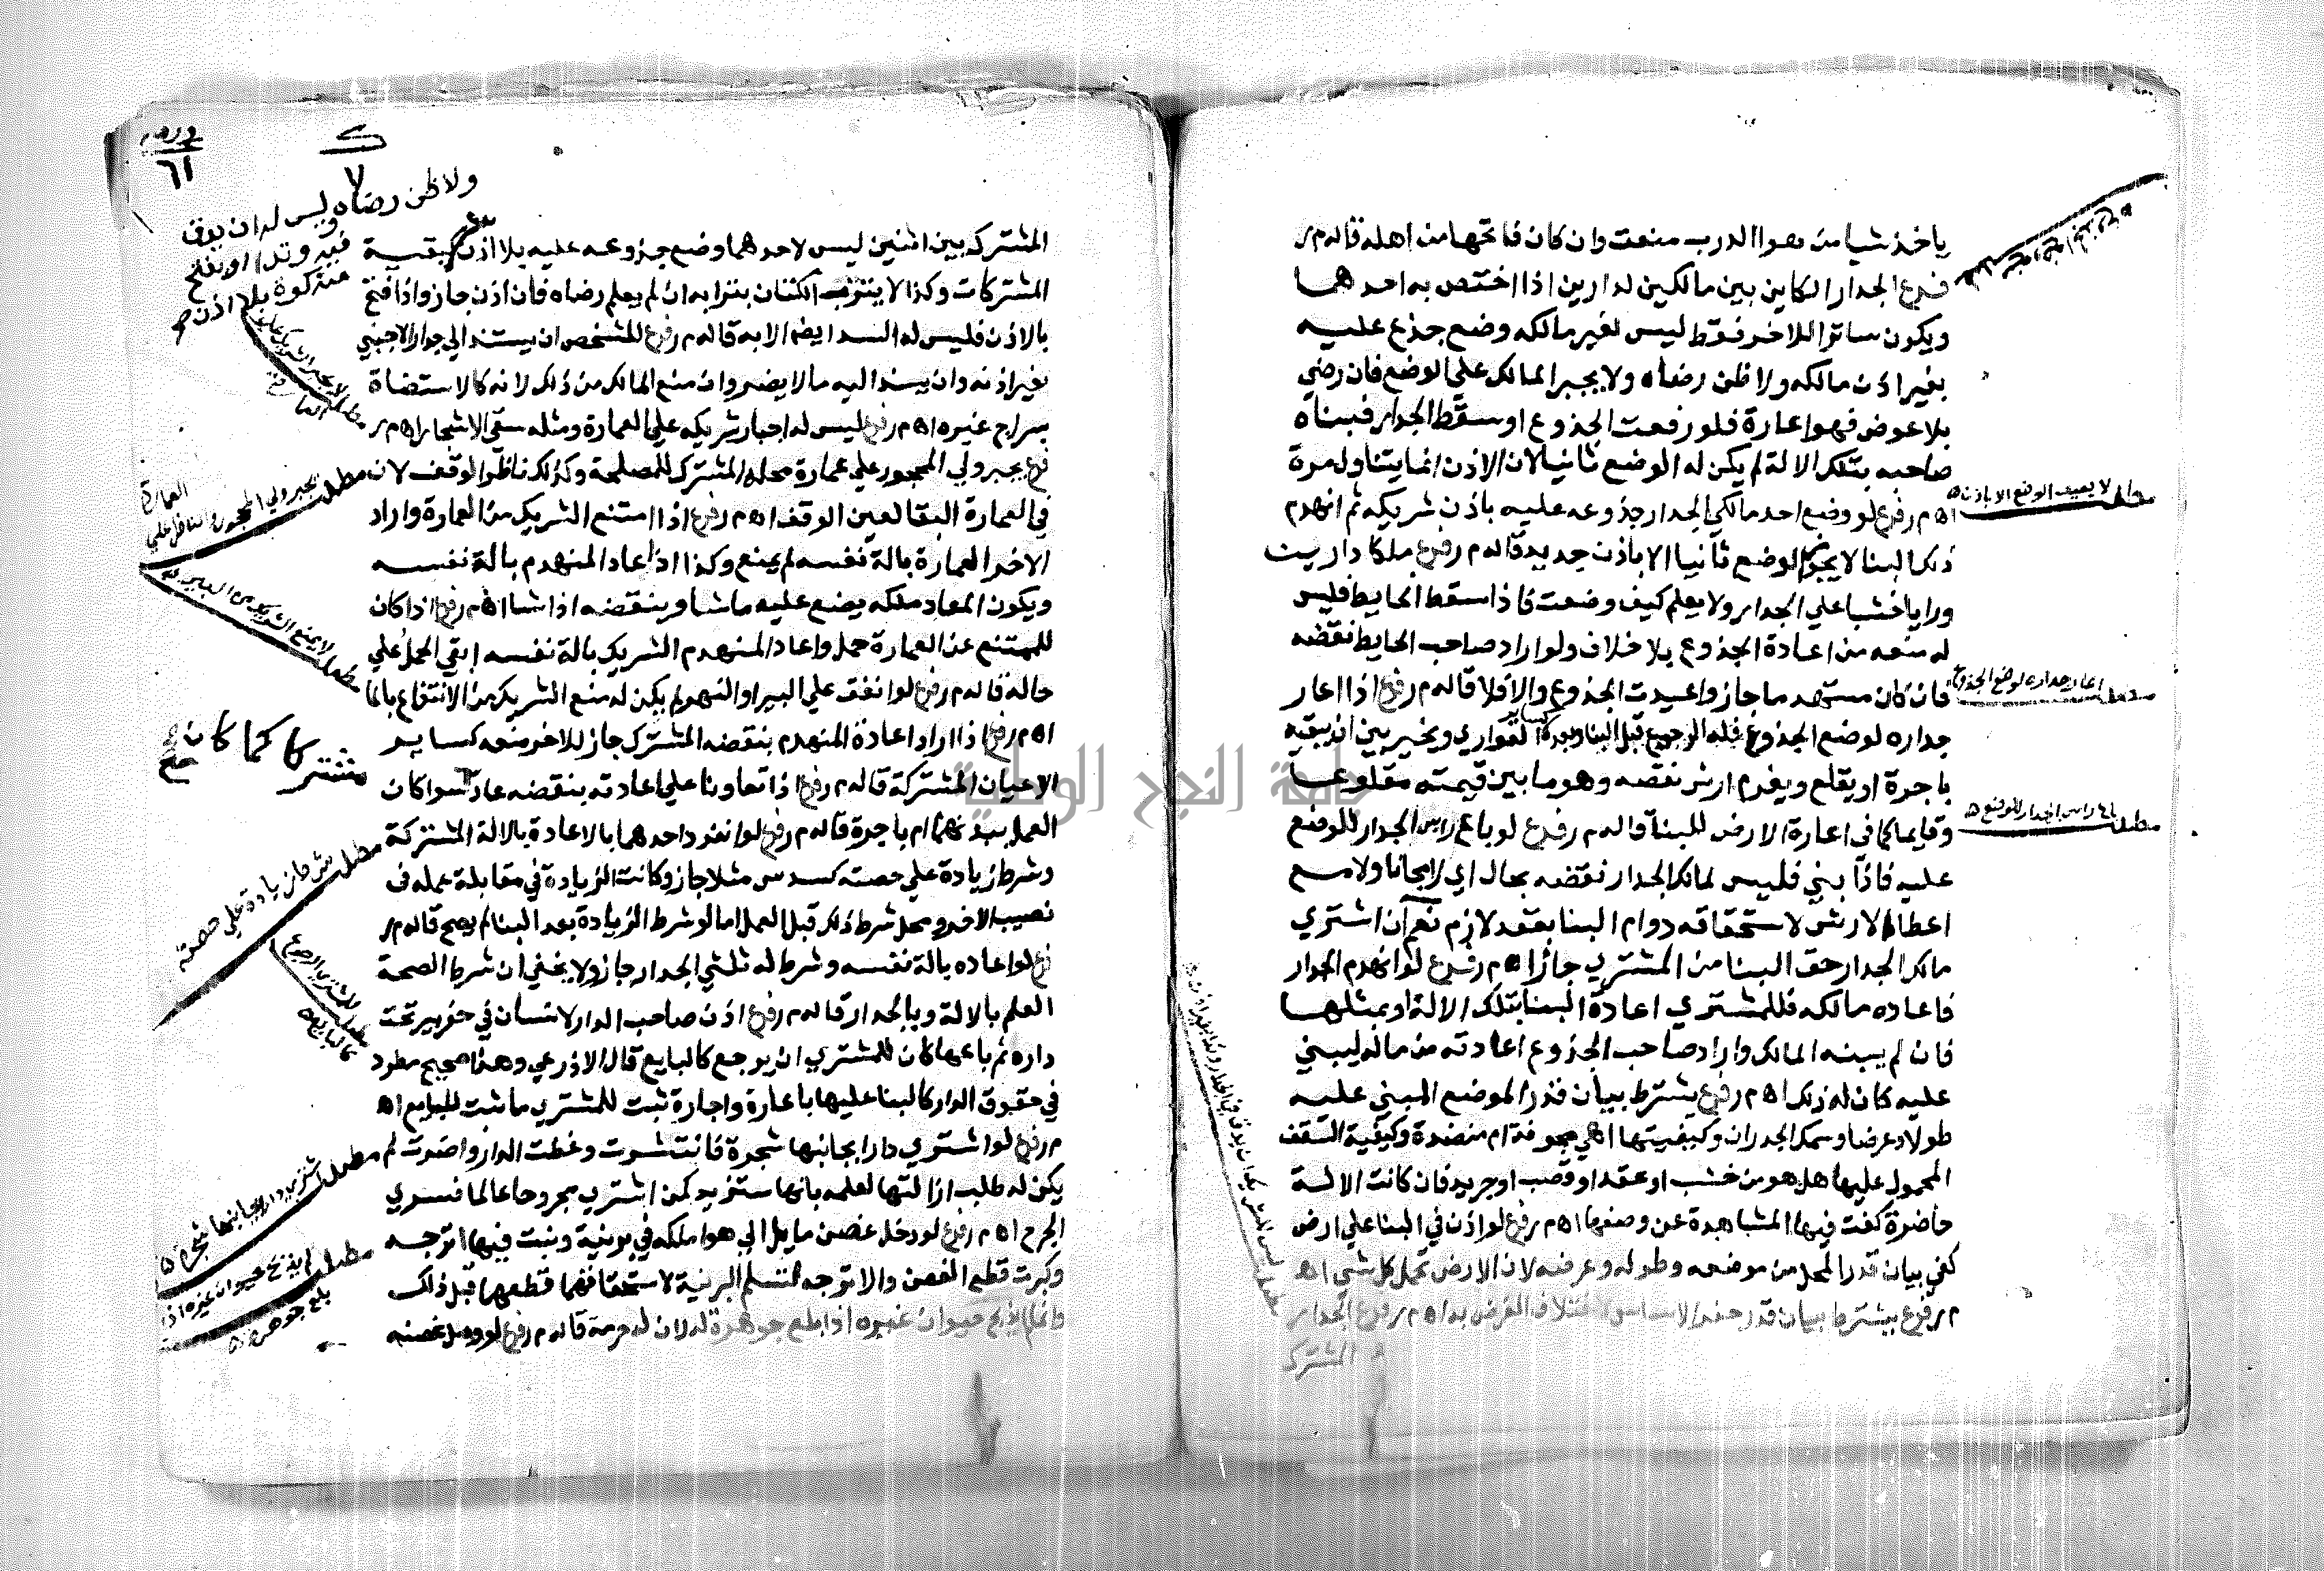 ياخذ شيا من هوا الدرب منعت وان كان فاتحها من اهله قاله م ر
فرع الجدار الكاين بين مالكين لدارين اذا اختص به احدهما
ويكون ساترا للاخر فقط ليس لغير مالكه وضع جذع عليه
بغير اذن مالكه ولا ظن رضاه ولا يجبر المالك علي الوضع فان رضي
بلا عوض فهو اعارة فلو رفعت الجذوع او سقط الجدار فبناه
صاحبه بتلك الالة لم يكن له الوضع ثانيا لان الاذن انما يتناول مرة
اه م ر فرع لو وضع احد مالكي الجدار جذوعه عليه باذن شريكه ثم انهدم
ذلك البنا لا يجوز الوضع ثانيا الا باذن جديد قاله م ر فرع ملكا دارين
ورايا خشبا علي الجدار ولا يعلم كيف وضعت فاذا سقط الحايط فليس
له منعه من اعادة الجذوع بلا خلاف ولو اراد صاحب الحايط نقضه
فان كان مستهدما جاز واعيدت الجذوع والا فلا قاله م ر فرع اذا اعار
جداره لوضع الجذوع فله الرجوع قبل البنا وبعده كساير العواري ويخير بين ان يبقيه
باجرة او يقلع ويغرم ارش نقصه وهو ما بين قيمته مقلوعا
وقايما كما في اعارة الارض للبنا قاله م ر فرع لو باع راس الجدار للوضع
عليه فاذا بني فليس لمالك الجدار نقضه بحال اي لا مجانا ولا مع
اعطا الارش لاستحقاقه دوام البنا بعقد لازم نعم ان اشتري
مالك الجدار حق البنا من المشتري جاز اه م ر فرع لو انهدم الجدار
فاعاده مالكه فللمشتري اعادة البنا بتلك الالة او بمثلها
فان لم يبنه المالك واراد صاحب الجذوع اعادته من ماله ليبني
عليه كان له ذلك اه م ر فرع يشترط بيان قدر الموضع المبني عليه
طولا وعرضا وسمك الجدران وكيفيتها اهي مجوفة ام منضدة وكيفية السقف
المحمول عليها هل هو من خشب او عقد او قصب او جريد فان كانت الالة
حاضرة كفت فيها المشاهدة عن وصفها اه م ر فرع لو اذن في البنا علي ارض
كفي بيان قدر المحل من موضعه وطوله وعرضه لان الارض تحمل كل شي اه
م ر فرع يشترط بيان قدر حفر الاساس لاختلاف الغرض به اه م ر فرع الجدار
المشترك
لا يعيد الوضع الا باذن
اعار جداره لوضع الجذوع
باع راس الجدار للوضع
٦١
ولا ظن رضاه وليس له ان يدق
فيه وتدا او يفتح
منه كوة بلا اذن صح
المشترك بين اثنين ليس لاحدهما وضع جذوعه عليه بلا اذن كبقية
المشتركات وكذا لا يتترب الكتاب بترابه ان لم يعلم رضاه فان اذن جاز واذا فتح
بالاذن فليس له السد ايضا الا به قاله م ر فرع للشخص ان يستند الي جدار الاجنبي
بغير اذنه وان يسند اليه ما لا يضر وان منع المالك من ذلك لانه كالاستضاة
بسراج غيره اه م ر فرع ليس له اجبار شريكه علي العمارة ومثله سقي الاشجار اه م ر
فرع يجبر ولي المحجور علي عمارة محله المشترك للمصلحة وكذلك ناظر الوقف لان
في العمارة البقا لعين الوقف اه م ر فرع اذا امتنع الشريك من العمارة واراد
الاخر العمارة بالة نفسه لم يمنع وكذا اذا اعاد المنهدم بالة نفسه
ويكون المعاد ملكه يضع عليه ما شا وينقضه اذا شا اه م ر فرع اذا كان
للممتنع عن العمارة حمل واعاد المنهدم الشريك بالة نفسه ابقي الحمل علي
حاله قاله م ر فرع لو انفق علي البير او النهر لم يكن له منع الشريك من الانتفاع بالما
اه م ر فرع اذا اراد اعادة المنهدم بنقضه المشترك جاز للاخر منعه كساير
الاعيان المشتركة قاله م ر فرع اذا تعاونا علي اعادته بنقضه عاد سوا كان
مشتركا كما كان صح
العمل ببدنهما ام باجرة قاله م ر فرع لو انفرد احدهما بالاعادة بالالة المشتركة
وشرط زيادة علي حصته كسدس مثلا جاز وكانت الزيادة في مقابلة عمله في
نصيب الاخر ومحل شرط ذلك قبل العمل اما لو شرط الزيادة بعد البنا لم يصح قاله م ر
فرع لو اعاده بالة نفسه وشرط له ثلثي الجدار جاز ولا يخفي ان شرط الصحة
العلم بالالة وبالجدار قاله م ر فرع اذن صاحب الدار لانسان في حفر بير تحت
داره ثم باعها كان للمشتري ان يرجع كالبايع قال الاذرعي وهذا صحيح مطرد
في حقوق الدار كالبنا عليها باعارة واجارة ثبت للمشتري ما ثبت للبايع اه
م ر فرع لو اشتري دارا بجانبها شجرة فانتشرت وغطت الدار واضرت لم
يكن له طلب ازالتها لعلمه بانها ستزيد كمن اشتري مجروحا عالما فسري
الجرح اه م ر فرع لو دخل غصن مايل الي هوا ملكه في برنية ونبت فيها اترجه
وكبرت قطع الغصن والاترجه لتسلم البرنية لاستحقاقهما قطعهما قبل ذلك
وانما لم يذبح حيوان غيره اذا بلع جوهرة له لان له حرمة قاله م ر فرع لو وصل غصنه
مطلب شرط زيادة علي حصته
مطلب اشتري دارا بجانبها شجرة
مطلب لم يذبح حيوان غيره اذا
بلع جوهرة